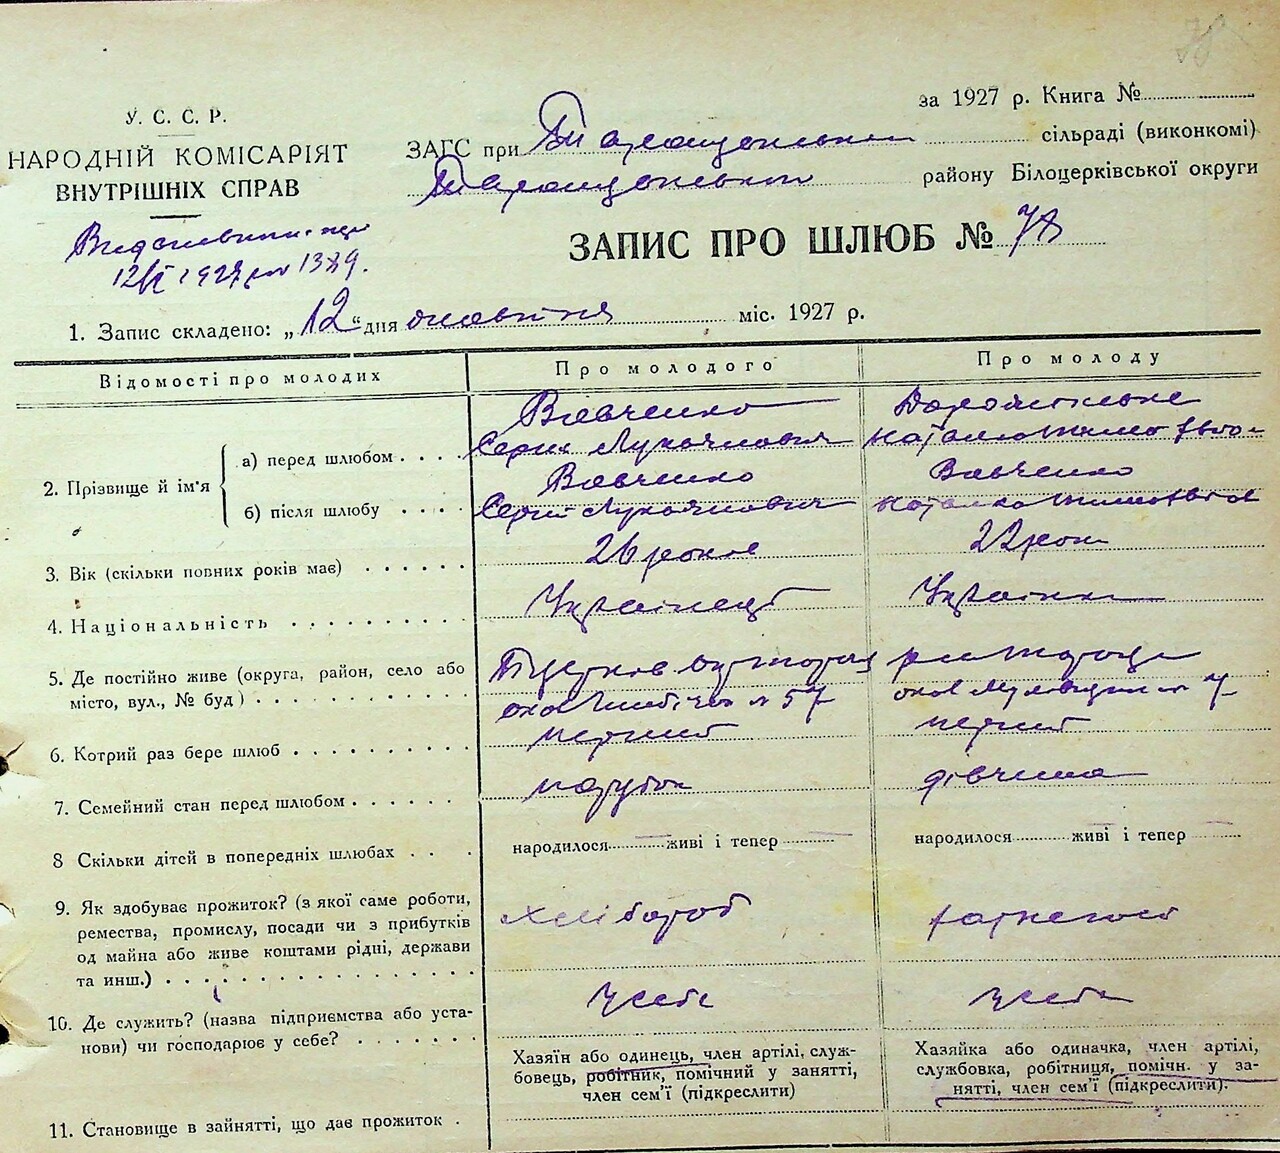 78
У. С. С. Р.
НАРОДНІЙ КОМІСАРІЯТ
ВНУТРІШНІХ СПРАВ
12/X 1927 1389.
за 1927 р. Книга №
ЗАГС при Таращанськім сільраді (виконкомі)
Таращанського району Білоцерківської округи
ЗАПИС ПРО ШЛЮБ № 78
1. Запис складено: „12“ дня октября міс. 1927 р.
Відомості про молодих
Про молодого
Про молоду
2. Прізвище й ім'я
а) перед шлюбом
Вовченко
Сергій Лукянович
Наталка
б) після шлюбу
Вовченко
Сергій Лукянович
Вовченко
Наталка
3. Вік (скільки повних років має)
26 років
22 роки
4. Національність
Українець
Українка
5. Де постійно живе (округа, район, село або
місто, вул., № буд)
№ 57
7
6. Котрий раз бере шлюб
перший
перший
7. Семейний стан перед шлюбом
парубок
дівчина
8 Скільки дітей в попередніх шлюбах
народилося — живі і тепер —
народилося — живі і тепер —
9. Як здобуває прожиток? (з якої саме роботи,
ремества, промислу, посади чи з прибутків
од майна або живе коштами рідні, держави
та инш.)
хлібороб
10. Де служить? (назва підприємства або уста-
нови) чи господарює у себе?
у себе
у себе
11. Становище в зайнятті, що дає прожиток
Хазяїн або одинець, член артілі, служ-
бовець, робітник, помічний у занятті,
член сем'ї (підкреслити)
Хазяйка або одиначка, член артілі,
службовка, робітниця, помічн. у за-
нятті, член сем'ї (підкреслити).